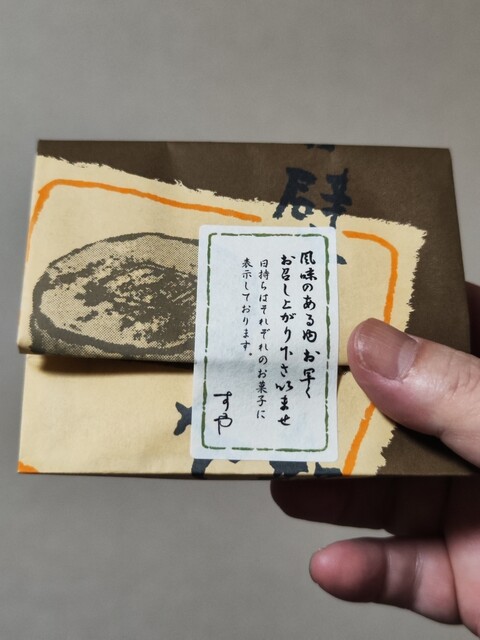 風味のある内お早く
お召し上がり下さいませ
日持ちはそれぞれのお菓子に
表示しております。
すや